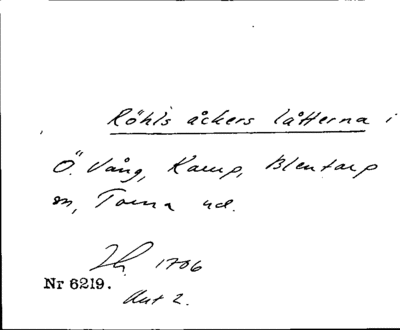 Röhls åckers låtterna i
Ö. Vång, Kamp, Blentarp
sn, Torna hd.
1706
Nr 6219.
Akt 2.